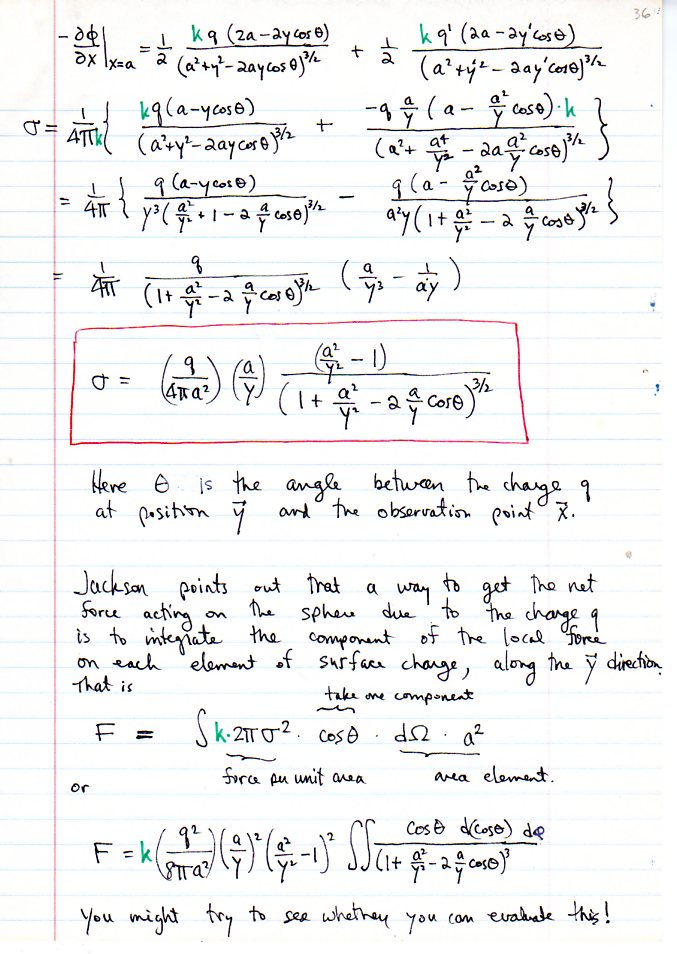 36
-∂ϕ/∂x|x=a = 1/2 kq(2a-2ycosθ)/(a²+y²-2aycosθ)^3/2 + 1/2 kq'(2a-2y'cosθ)/(a²+y'²-2ay'cosθ)^3/2
σ = 1/4πk { kq(a-ycosθ)/(a²+y²-2aycosθ)^3/2 + -q a/y (a - a²/y cosθ)·k/(a²+ a⁴/y² - 2a a²/y cosθ)^3/2 }
= 1/4π { q(a-ycosθ)/y³(a²/y² + 1 - 2 a/y cosθ)^3/2 - q(a - a²/y cosθ)/a²y(1 + a²/y² - 2 a/y cosθ)^3/2 }
= 1/4π q/(1 + a²/y² - 2 a/y cosθ)^3/2 (a/y³ - 1/ay)
σ = (q/4πa²) (a/y) (a²/y² - 1)/(1 + a²/y² - 2 a/y cosθ)^3/2
Here θ is the angle between the charge q
at position y⃗ and the observation point x⃗.
Jackson points out that a way to get the net
force acting on the sphere due to the charge q
is to integrate the component of the local force
on each element of surface charge, along the y⃗ direction.
That is
take one component
F = ∫ k·2πσ² · cosθ · dΩ · a²
force per unit area area element.
or
F = k (q²/8πa²) (a/y)² (a²/y² - 1)² ∫∫ cosθ d(cosθ) dφ/(1 + a²/y² - 2 a/y cosθ)³
You might try to see whether you can evaluate this!